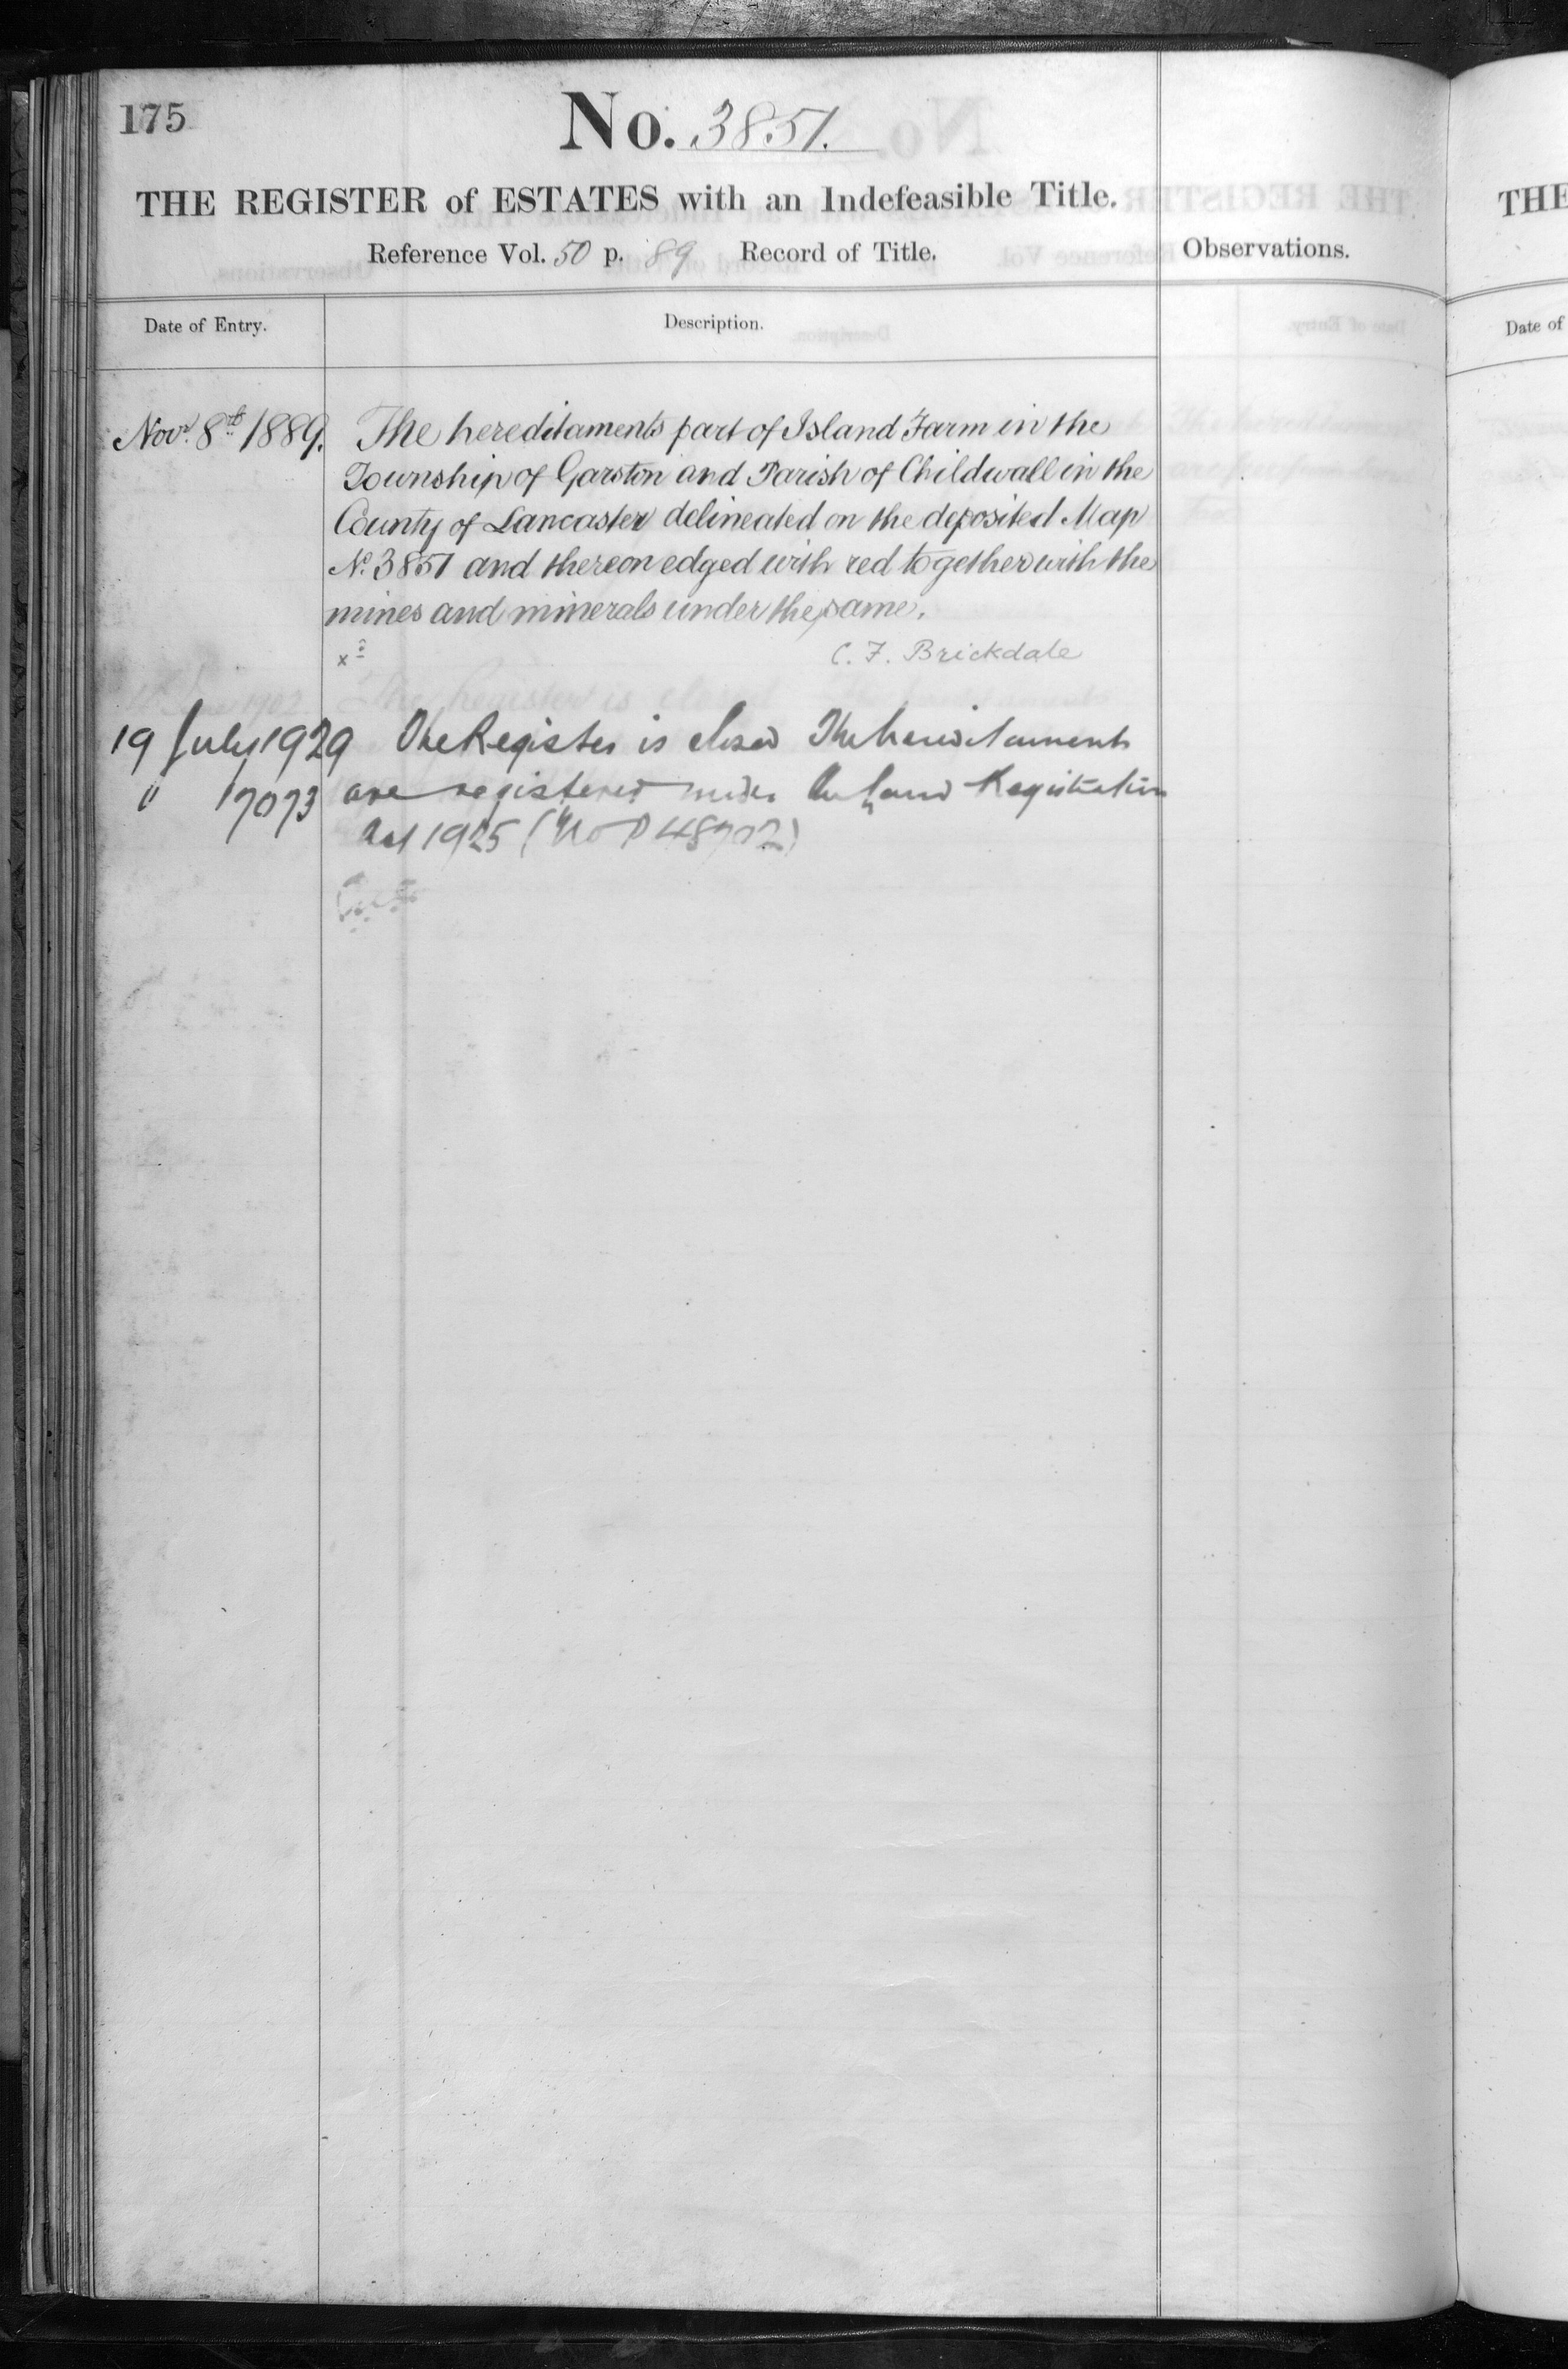 175
No. 3851.
THE REGISTER of ESTATES with an Indefeasible Title.
Reference Vol. 50 p. 89 Record of Title.
Observations.
Date of Entry.
Description.
Novr. 8th 1889. The hereditaments part of Island Farm in the
Township of Garston and Parish of Childwall in the
County of Lancaster delineated on the deposited Map
No. 3851 and thereon edged with red together with the
mines and minerals under the same.
C. F. Brickdale
19 July 1929 The Register is closed The hereditaments
" 17073 are registered under the Land Registration
Act 1925 (No P 48702)
THE
Date of